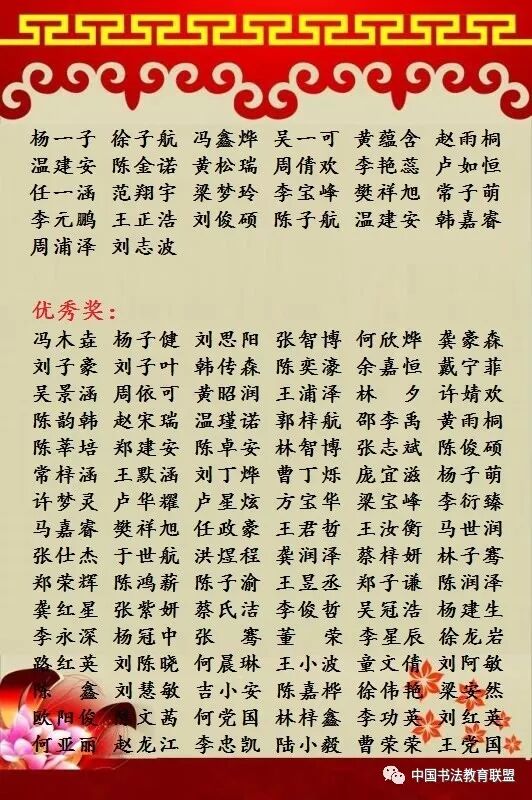 杨一子 徐子航 冯鑫烨 吴一可 黄蕴含 赵雨桐
温建安 陈金诺 黄松瑞 周倩欢 李艳蕊 卢如恒
任一涵 范翔宇 梁梦玲 李宝峰 樊祥旭 常子萌
李元鹏 王正浩 刘俊硕 陈子航 温建安 韩嘉睿
周浦泽 刘志波
优秀奖：
冯木垚 杨子健 刘思阳 张智博 何欣烨 龚豪森
刘子豪 刘子叶 韩传森 陈奕濠 余嘉恒 戴宁菲
吴景涵 周依可 黄昭润 王浦泽 林 夕 许婧欢
陈韵韩 赵宋瑞 温瑾诺 郭梓航 邵李禹 黄雨桐
陈莘培 郑建安 陈卓安 林智博 张志斌 陈俊硕
常梓涵 王默涵 刘丁烨 曹丁烁 庞宜滋 杨子萌
许梦灵 卢华耀 卢星炫 方宝华 梁宝峰 李衍臻
马嘉睿 樊祥旭 任政豪 王君哲 王汝衡 马世润
张仕杰 于世航 洪煜程 龚润泽 蔡梓妍 林子骞
郑荣辉 陈鸿薪 陈子渝 王昱丞 郑子谦 陈润泽
龚红星 张紫妍 蔡氏洁 李俊哲 吴冠浩 杨建生
李永深 杨冠中 张 骞 董 荣 李星辰 徐龙岩
路红英 刘陈晓 何晨琳 王小波 童文倩 刘阿敏
陈 鑫 刘慧敏 吉小安 陈嘉桦 徐伟艳 梁安然
欧阳俊 文茜 何党国 林梓鑫 李功英 刘红英
何亚丽 赵龙江 李忠凯 陆小毅 曹荣荣 王党国
中国书法教育联盟